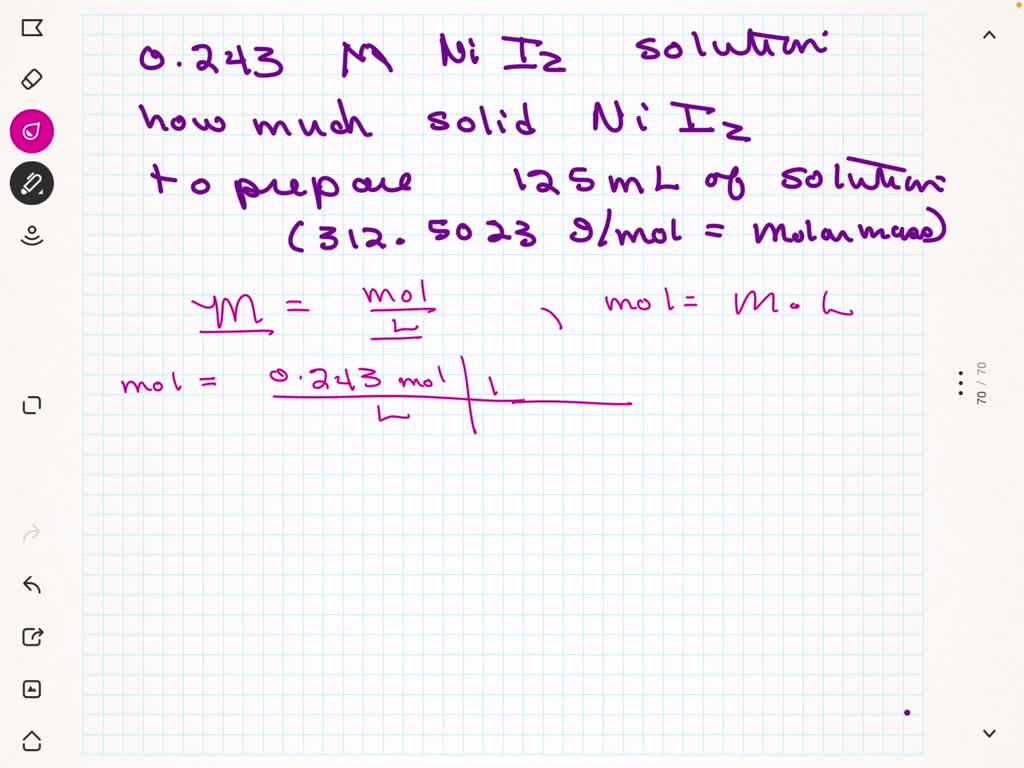 0.243 M NiI2 solution
how much solid NiI2
to prepare 125mL of solution
(312.5023 g/mol = molar mass)
M = mol/L , mol = M · L
mol = 0.243 mol | 1
L
70 / 70